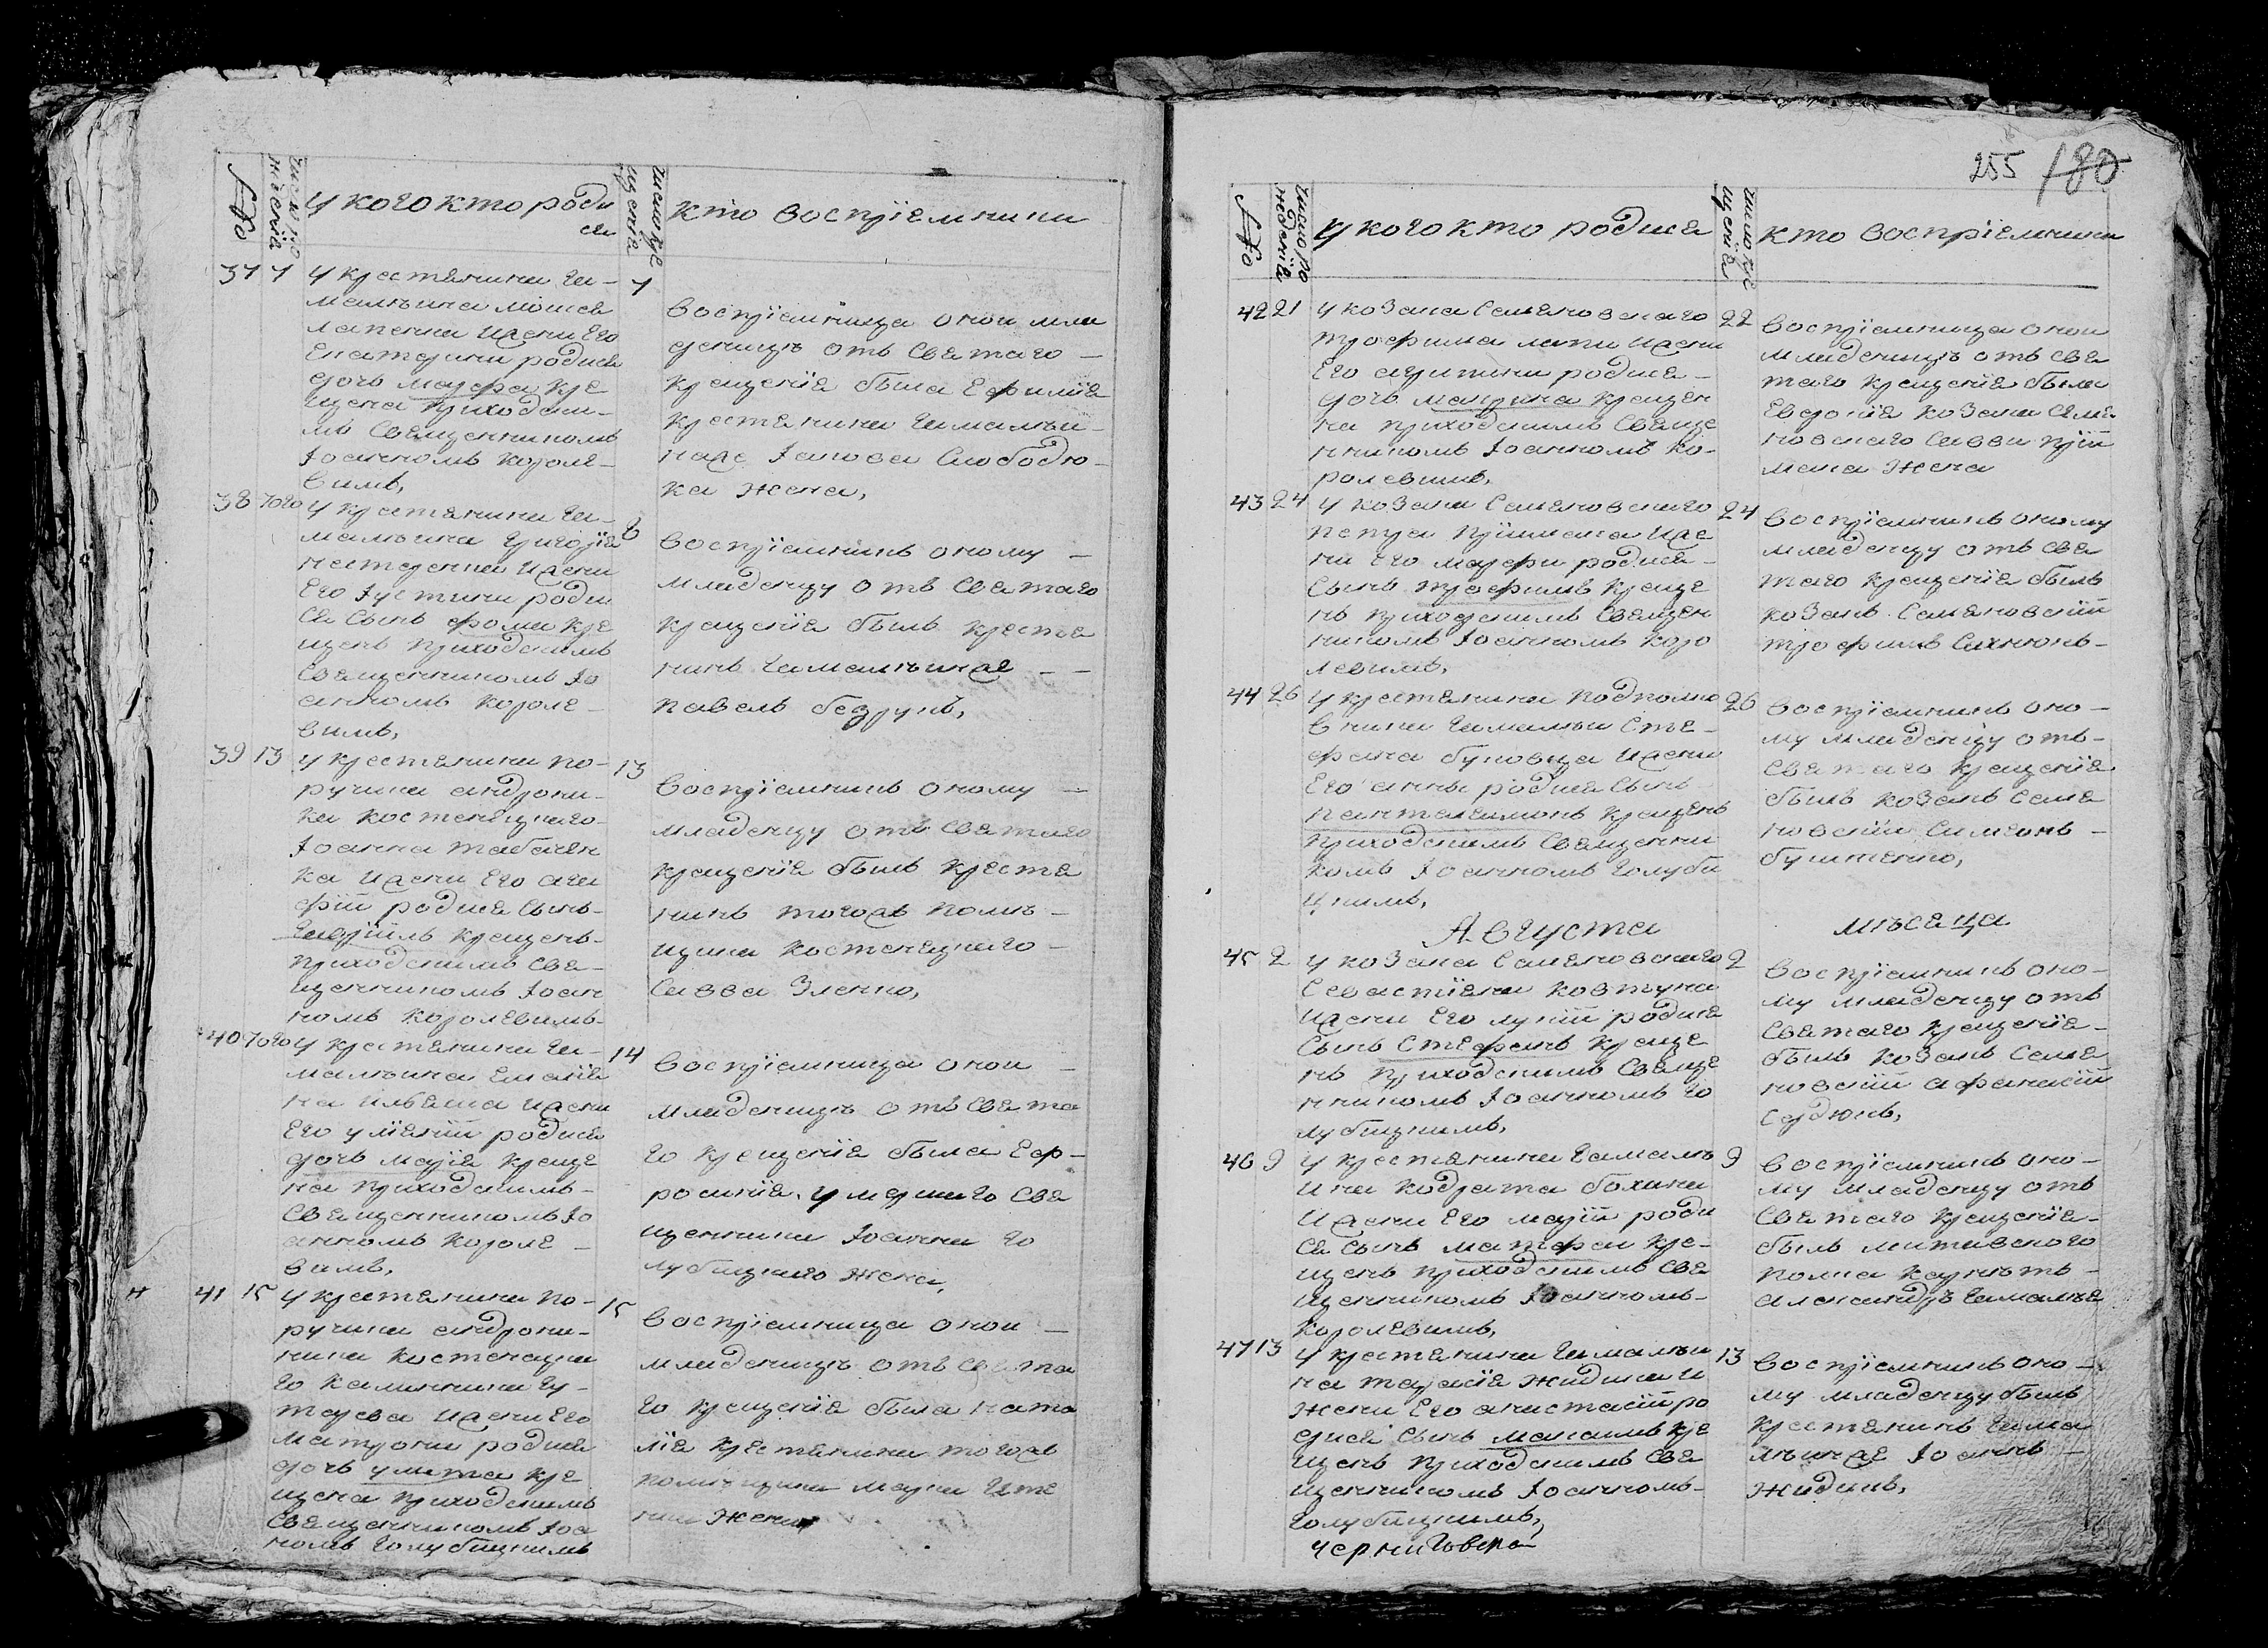 число ро
жденїя
У кого кто роди
ся
число кре
щенїя
кто воспрїемники
37 7 У крестянина Га-
малѣина Моисея
Лапенка и жени его
Екатерини родися
дочь Марфа кре
щена приходски-
мъ священникомъ
Іоанномъ Короле-
вимъ,
7
воспрїемница оной мла
деницѣ отъ святаго
крещенїя была Ефимїя
крестянина Гамалѣи-
наже Іакова Слободю-
ка жена,
38 того У крестянина Га-
малѣина Григорїя
Нестеренка и жени
его Іустини роди
ся сынъ Фома кре
щенъ приходскимъ
священникомъ Іо
анномъ Короле-
вимъ,
8
воспрїемникъ оному
младенцу отъ святаго
крещенїя былъ крестя
нинъ Гамалѣинже
Павелъ безрукъ,
39 13 У крестянина по-
ручика Андрони-
ка Костенецкаго
Іоанна Табачен
ка и жени его Ага
фїи родися сынъ
Гаврїилъ крещенъ
приходскимъ свя-
щенникомъ Іоан
номъ Королевимъ
13
воспрїемникъ оному
младенцу отъ святаго
крещенїя былъ крестя
нинъ тогожъ помѣ-
щика Костенецкаго
Савва Зленко,
40 того У крестянина Га-
малѣина Емелїя
на Ильяша и жени
его Улїянїи родися
дочь Марїя креще
на приходскимъ
священникомъ Іо
анномъ Короле-
вимъ,
14
воспрїемница оной
младеницѣ отъ свята
го крещенїя была Еф-
росинїя умершаго свя
щенника Іоанна Го
лубицкаго жена,
41 15 У крестянина по-
ручика Андрони-
ника Костенецка
го Калинника Гу-
тарева и жени его
Матрони родися
дочь Улита кре
щена приходскимъ
священникомъ Іоа
номъ Голубицкимъ
15
воспрїемница оной
младеницѣ отъ свята
го крещенїя была Ната
лїя крестянина тогожъ
помѣщика Марка
жена
255 180
число ро
жденїя
У кого кто родися
число кре
щенїя
кто воспрїемники
42 21 У козака Семеновскаго
Трофима Лапи и жени
его Агрипини родися
дочь Макрина креще
на приходскимъ свяще
нникомъ Іоанномъ Ко-
ролевимъ,
22
воспрїемница оной
младеницѣ отъ свя
таго крещенїя была
Евдокїя козака Семе
новскаго Савви Прїй
мака жена
43 24 У козака Семеновскаго
Петра Прїймака и же
ни его Марфи родися
сынъ Трофимъ креще
нъ приходскимъ священ
никомъ Іоанномъ Коро
левимъ,
24
воспрїемникъ оному
младенцу отъ свя
таго крещенїя былъ
козакъ Семеновскїй
Трофимъ Сахнюкъ
44 26 У крестянина подполко
вника Гамалѣи Сте-
фана Буковца и жени
его Анны родися сынъ
Пантелеимонъ крещенъ
приходскимъ священни
комъ Іоанномъ Голуби
цкимъ,
26
воспрїемникъ оно-
му младенцу отъ
святаго крещенїя
былъ козакъ Семе
новскїй Симеонъ
Буштенко,
Августа мѣсяца
45 2 У козака Семеновскаго
Севастїяна Ковтуна
и жени его Лукїи родися
сынъ Стефанъ креще
нъ приходскимъ свяще
нникомъ Іоанномъ Го
лубицкимъ,
2
воспрїемникъ оно-
му младенцу отъ
святаго крещенїя
былъ козакъ Семе
новскїй Афанасїй
Сердюкъ,
46 9 У крестянина Гамалѣ
ина Кодрата Бохана
и жени его Марїи роди
ся сынъ Матфей кре-
щенъ приходскимъ свя
щенникомъ Іоанномъ
Королевимъ,
9
воспрїемникъ оно-
му младенцу отъ
святаго крещенїя
былъ Митавского
полка карнѣтъ
Александръ Гамалѣя
47 13 У крестянина Гамалѣи
на Тарасїя Жидика и
жени его Анастасїи ро
дися сынъ Максимъ кре
щенъ приходскимъ свя
щенникомъ Іоанномъ
Голубицкимъ,
13
воспрїемникъ оно-
му младенцу былъ
крестянинъ Гама
лѣинже Іоаннъ
Жидикъ,
Чернѣговской